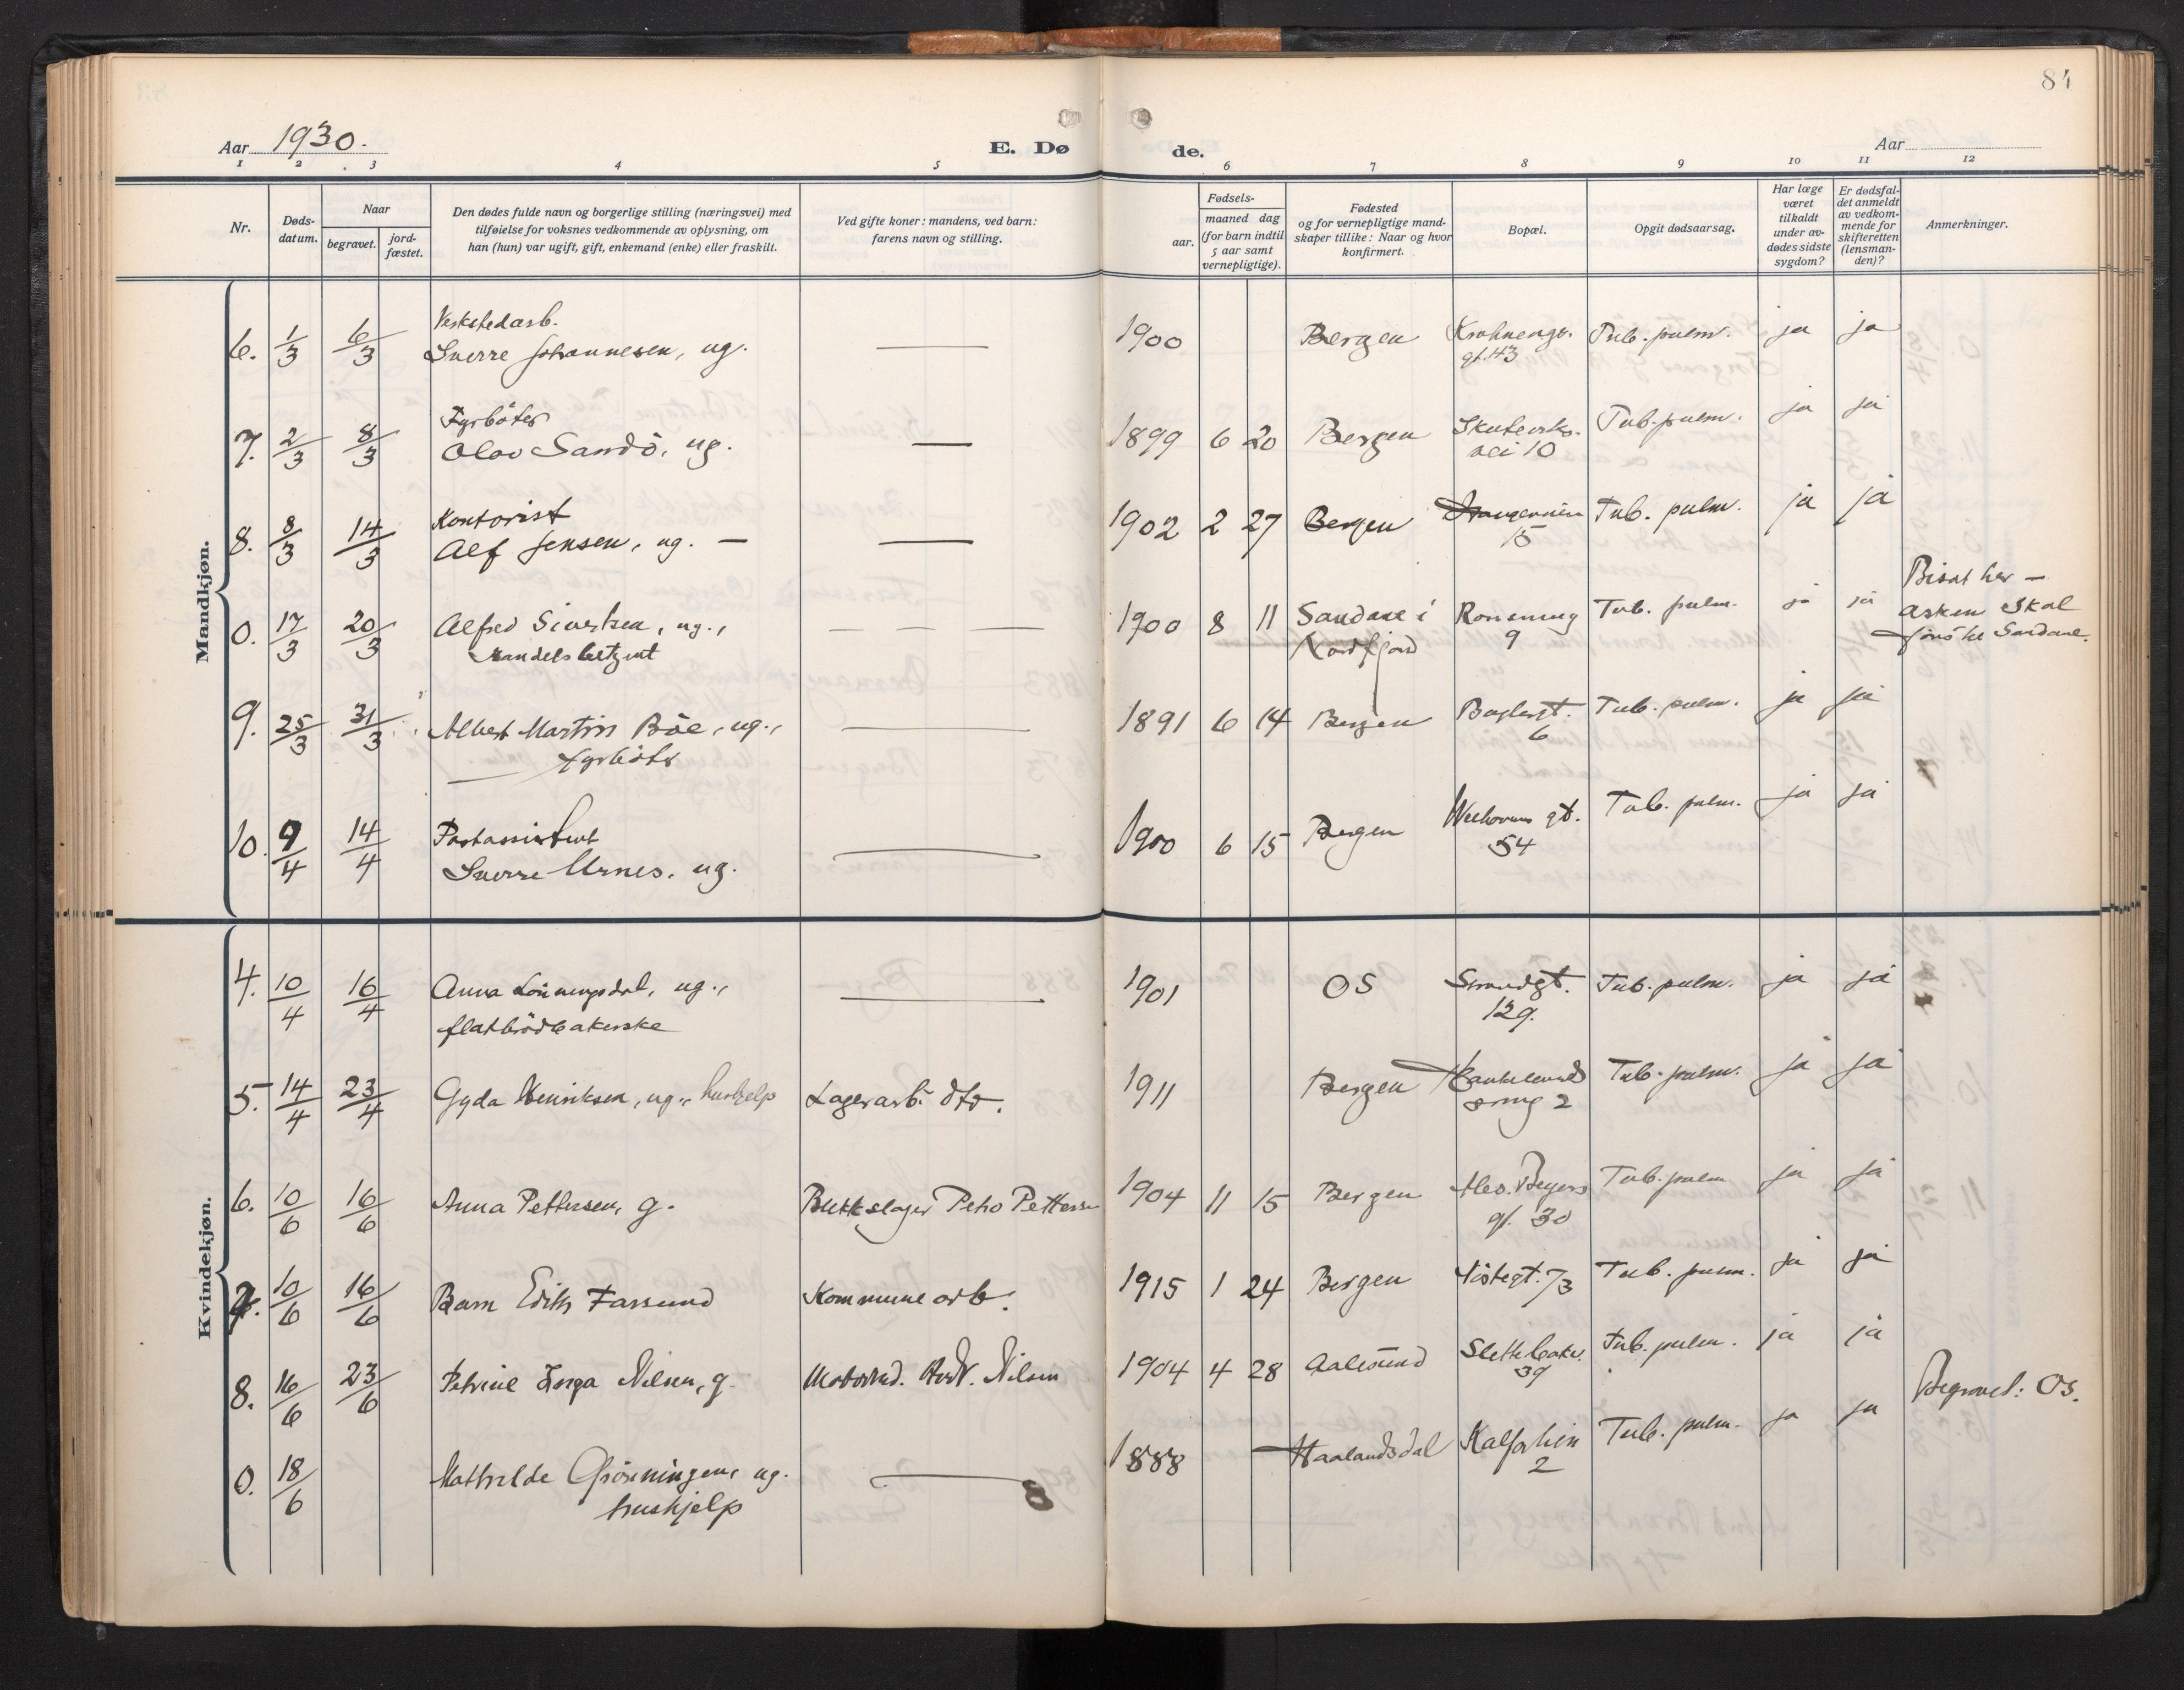 84
Aar 1930.
E. Døde.
Aar
1 2 3 4 5 6 7 8 9 10 11 12
Nr.
Døds-
datum.
Naar
begravet.
jord-
fæstet.
Den dødes fulde navn og borgerlige stilling (næringsvei) med
tilføielse for voksnes vedkommende av oplysning, om
han (hun) var ugift, gift, enkemand (enke) eller fraskilt.
Ved gifte koner: mandens, ved barn:
farens navn og stilling.
Fødsels-
aar.
maaned dag
(for barn indtil
5 aar samt
vernepligtige).
Fødested
og for vernepligtige mand-
skaper tillike: Naar og hvor
konfirmert.
Bopæl.
Opgit dødsaarsag.
Har læge
været
tilkaldt
under av-
dødes sidste
sygdom?
Er dødsfal-
det anmeldt
av vedkom-
mende for
skifteretten
(lensman-
den)?
Anmerkninger.
Mandkjøn.
Verkstedarb.
6. 1/3 6/3 Sverre Johannesen, ug. — 1900 Bergen Krohnengs. Tub. pulm. ja ja
gt. 43
Fyrbøter
7. 2/3 8/3 Olav Sandö, ug. — 1899 6 20 Bergen Skuteviks. Tub. pulm. ja ja
vei 10
Kontorist
8. 8/3 14/3 Alf Jensen, ug. — — 1902 2 27 Bergen Tub. pulm. ja ja
15
Bisat her —
0. 17/3 20/3 Alfred Sivertsen, ug., — — — 1900 8 11 Sandane i Tub. pulm. ja ja asken skal
Handelsbetjent Nordfjord 9 Sandane.
9. 25/3 31/3 Albert Martin Böe, ug., — 1891 6 14 Bergen Baglergt. Tub. pulm. ja ja
fyrböter 6
Postassistent
10. 9/4 14/4 Sverre Urnes. ug. — 1900 6 15 Bergen Welhavens gt. Tub. pulm. ja ja
54
Kvindekjøn.
4. 10/4 16/4 Anna Lönningdal, ug., — 1901 OS Strandgt. Tub. pulm. ja ja
flatbrödbakerske 129.
5. 14/4 23/4 Gyda Henriksen, ug., hushjelp Lagerarb. dtr. 1911 Bergen Haukelands Tub. pulm. ja ja
2
6. 10/6 16/6 Anna Pettersen, g. Blikkslager Petter 1904 11 15 Bergen Abs. Beyers Tub. pulm ja ja
gt. 30
7. 10/6 16/6 Barn Edith Farsund Kommunearb. 1915 1 24 Bergen Nöstegt. 73 Tub. pulm. ja ja
8. 16/6 23/6 Petrine Inga Nilsen, g. Nilsen 1904 4 28 Aalesund Slettebakv. Tub. pulm. ja ja
39
Begravet: Os.
0. 18/6 Mathilde Grönningen, ug. — 1888 Haalandsdal Kalfarlien Tub. pulm. ja ja
hushjelp 2